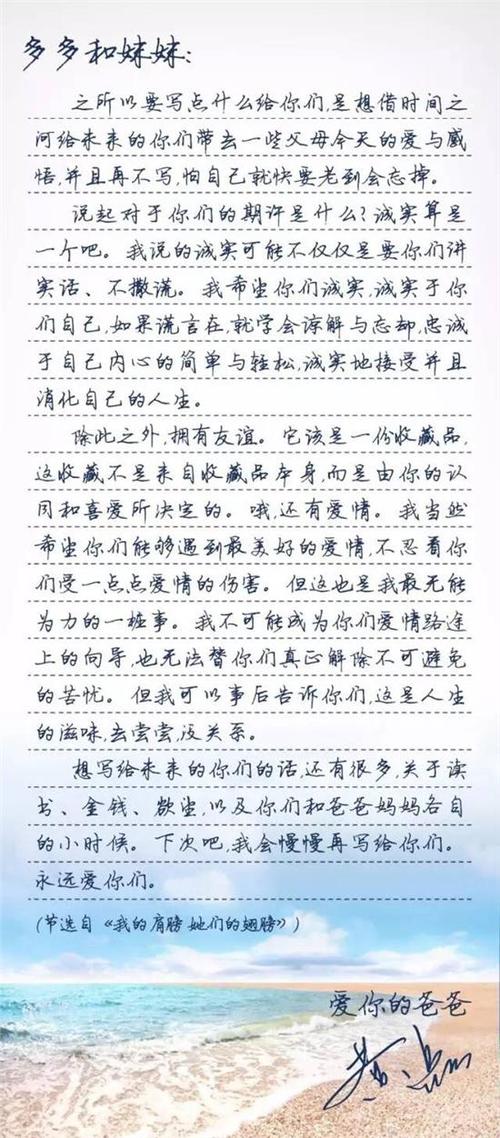 多多和妹妹：
之所以要写点什么给你们,是想借时间之
河给未来的你们带去一些父母今天的爱与感
悟,并且再不写,怕自己就快要老到会忘掉。
说起对于你们的期许是什么?诚实算是
一个吧。我说的诚实可能不仅仅是要你们讲
实话、不撒谎。我希望你们诚实,诚实于你
们自己,如果谎言在,就学会谅解与忘却,忠诚
于自己内心的简单与轻松,诚实地接受并且
消化自己的人生。
除此之外,拥有友谊。它该是一份收藏品,
这收藏不是来自收藏品本身,而是由你的认
同和喜爱所决定的。哦,还有爱情。我当然
希望你们能够遇到最美好的爱情,不忍看你
们受一点点爱情的伤害。但这也是我最无能
为力的一桩事。我不可能成为你们爱情路途
上的向导,也无法替你们真正解除不可避免
的苦忧。但我可以事后告诉你们,这是人生
的滋味,去尝尝,没关系。
想写给未来的你们的话,还有很多,关于读
书、金钱、欲望,以及你们和爸爸妈妈各自
的小时候。下次吧,我会慢慢再写给你们。
永远爱你们。
(节选自《我的肩膀 她们的翅膀》)
爱你的爸爸